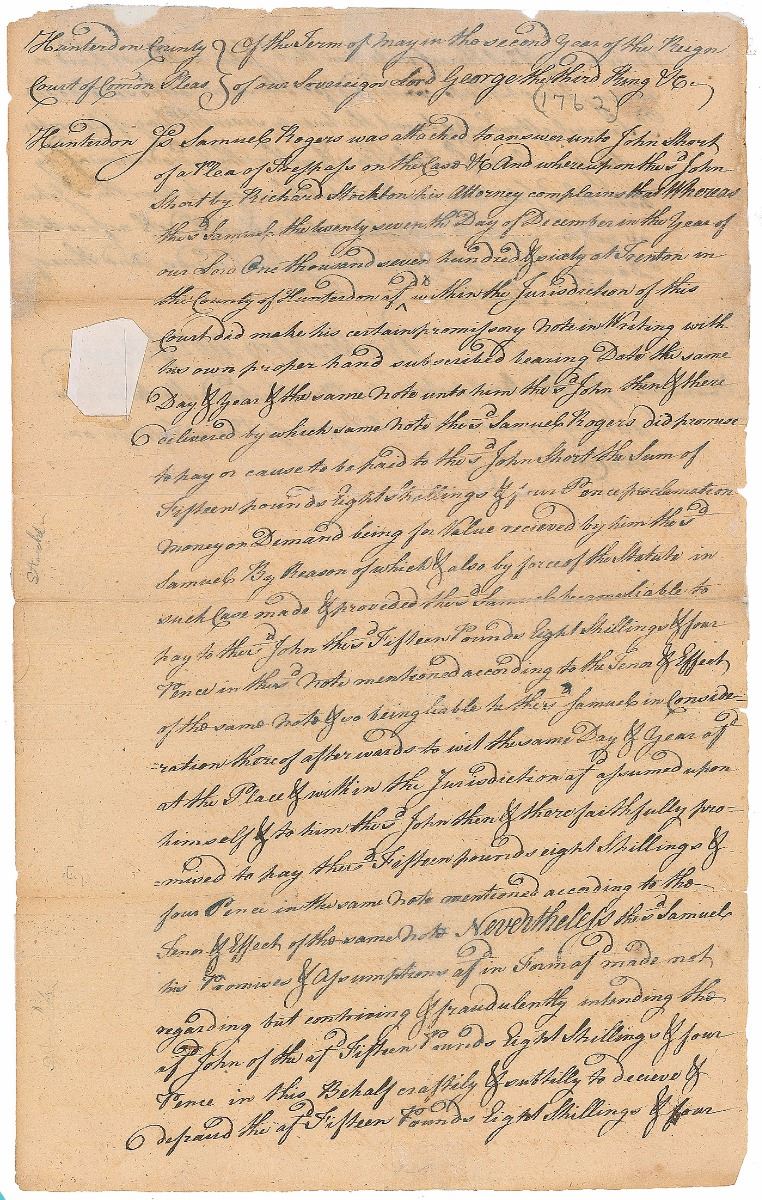 Hunterdon County } Of the Term of May in the second Year of the Reign
Court of Comon Pleas } of our Sovereign Lord George the Third King &c
(1762)
Hunterdon Js Samuel Rogers was attached to answer unto John Short
of a Plea of Trespass on the Case &c And whereupon the sd John
Short by Richard Stockton his Attorney complains that Whereas
the sd Samuel the twenty seventh Day of December in the Year of
our Lord One thousand seven hundred & sixty at Trenton in
the County of Hunterdon afd within the Jurisdiction of this
Court did make his certain promissory Note in Writing with
his own proper hand subscribed bearing Date the same
Day & Year & the same Note unto him the sd John then & there
delivered by which same Note the sd Samuel Rogers did promise
to pay or cause to be paid to the sd John Short the Sum of
Fifteen pounds Eight shillings & four Pence proclamation
money on Demand being for Value recieved by him the sd
Samuel By Reason of which & also by force of the Statute in
such Case made & provided the sd Samuel became liable to
pay to the sd John the sd Fifteen Pounds Eight Shillings & four
Pence in the sd Note mentioned according to the Tenor & Effect
of the same Note & so being liable he the sd Samuel in Conside-
-ration thereof afterwards to wit the same Day & Year afd
at the Place & within the Jurisdiction afd assumed upon
himself & to him the sd John then & there faithfully pro-
-mised to pay the sd Fifteen pounds eight Shillings &
four Pence in the same Note mentioned according to the
Tenor & Effect of the same Note Nevertheless the sd Samuel
his Promises & Assumptions afd in Form afd made not
regarding but contriving & fraudulently intending the
afd John of the afd Fifteen Pounds Eight Shillings & four
Pence in this Behalf craftily & subtilly to decieve &
defraud the afd Fifteen Pounds Eight Shillings & four